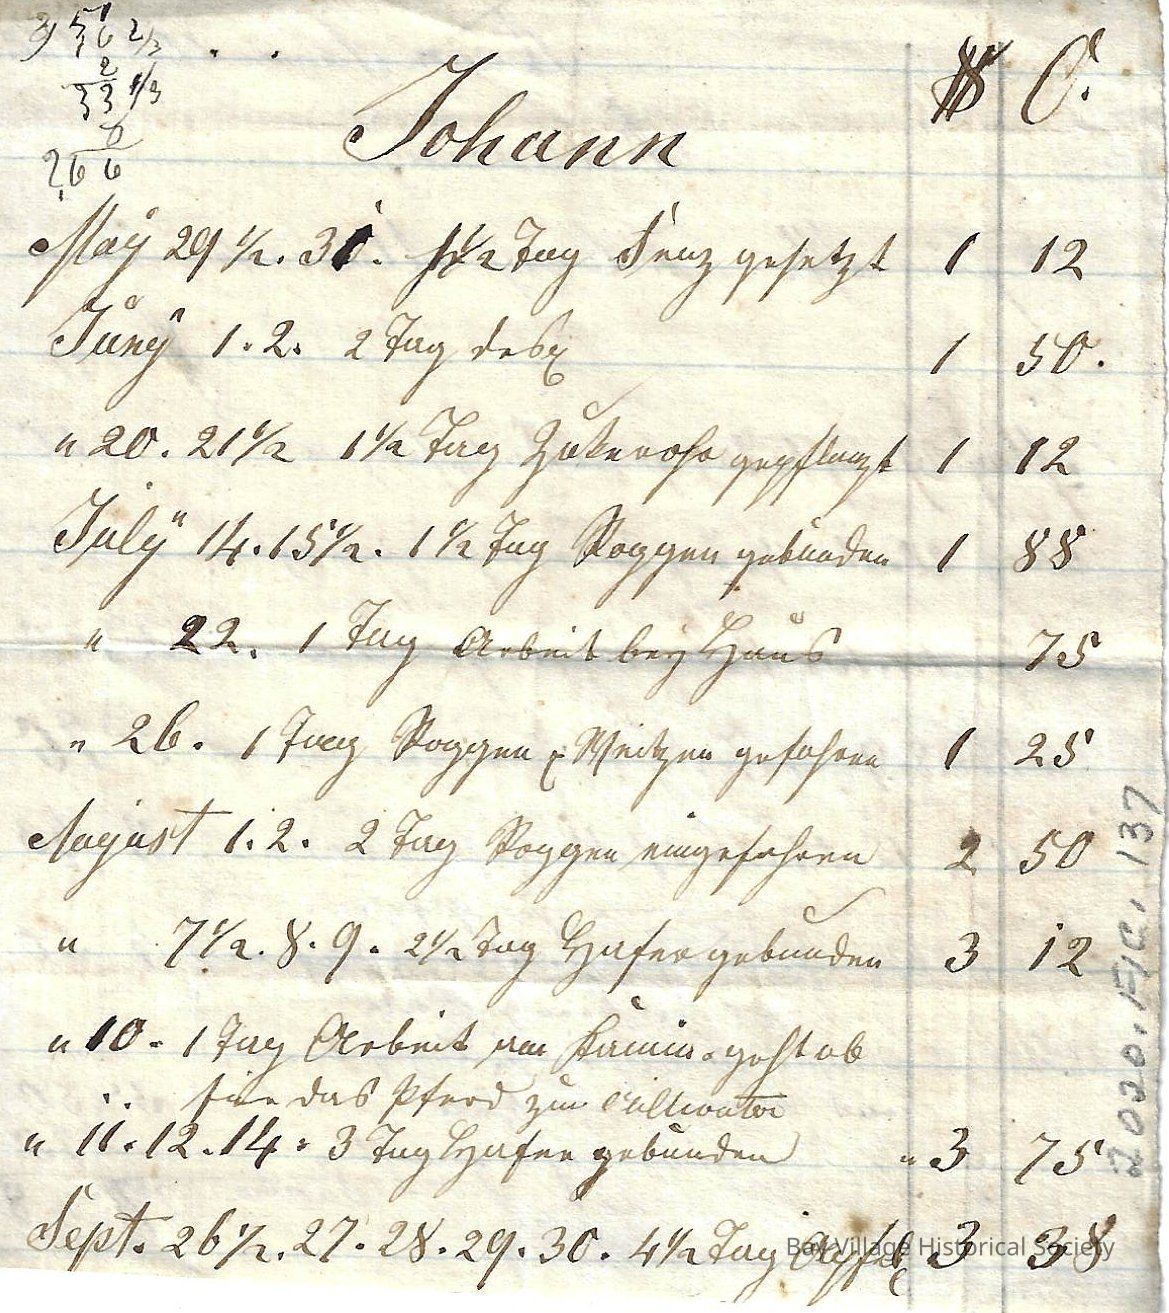 3) 5 6 2/3
2
33 1/3
8
266
$ C.
Johann
May 29 1/2. 30. 1 1/2 Tag Fenz gesetzt 1 12
Juny 1. 2. 2 Tag des 1 50.
" 20. 21 1/2 1 1/2 Tag Zukerrohr gepflanzt 1 12
July 14. 15 1/2. 1 1/2 Tag Roggen gebunden 1 88
" 22. 1 Tag Arbeit bey Haus 75
" 26. 1 Tag Roggen & Weitzen gefahren 1 25
August 1. 2. 2 Tag Roggen eingefahren 2 50
" 7 1/2. 8. 9. 2 1/2 Tag Hafer gebunden 3 12
" 10. 1 Tag Arbeit am Kamin geht ab
für das Pferd zum Cultivator
" 11. 12. 14. 3 Tag Hafer gebunden " 3 75
Sept. 26 1/2. 27. 28. 29. 30. 4 1/2 Tag Apfel 3 38
2030.FIC.137
Bay Village Historical Society